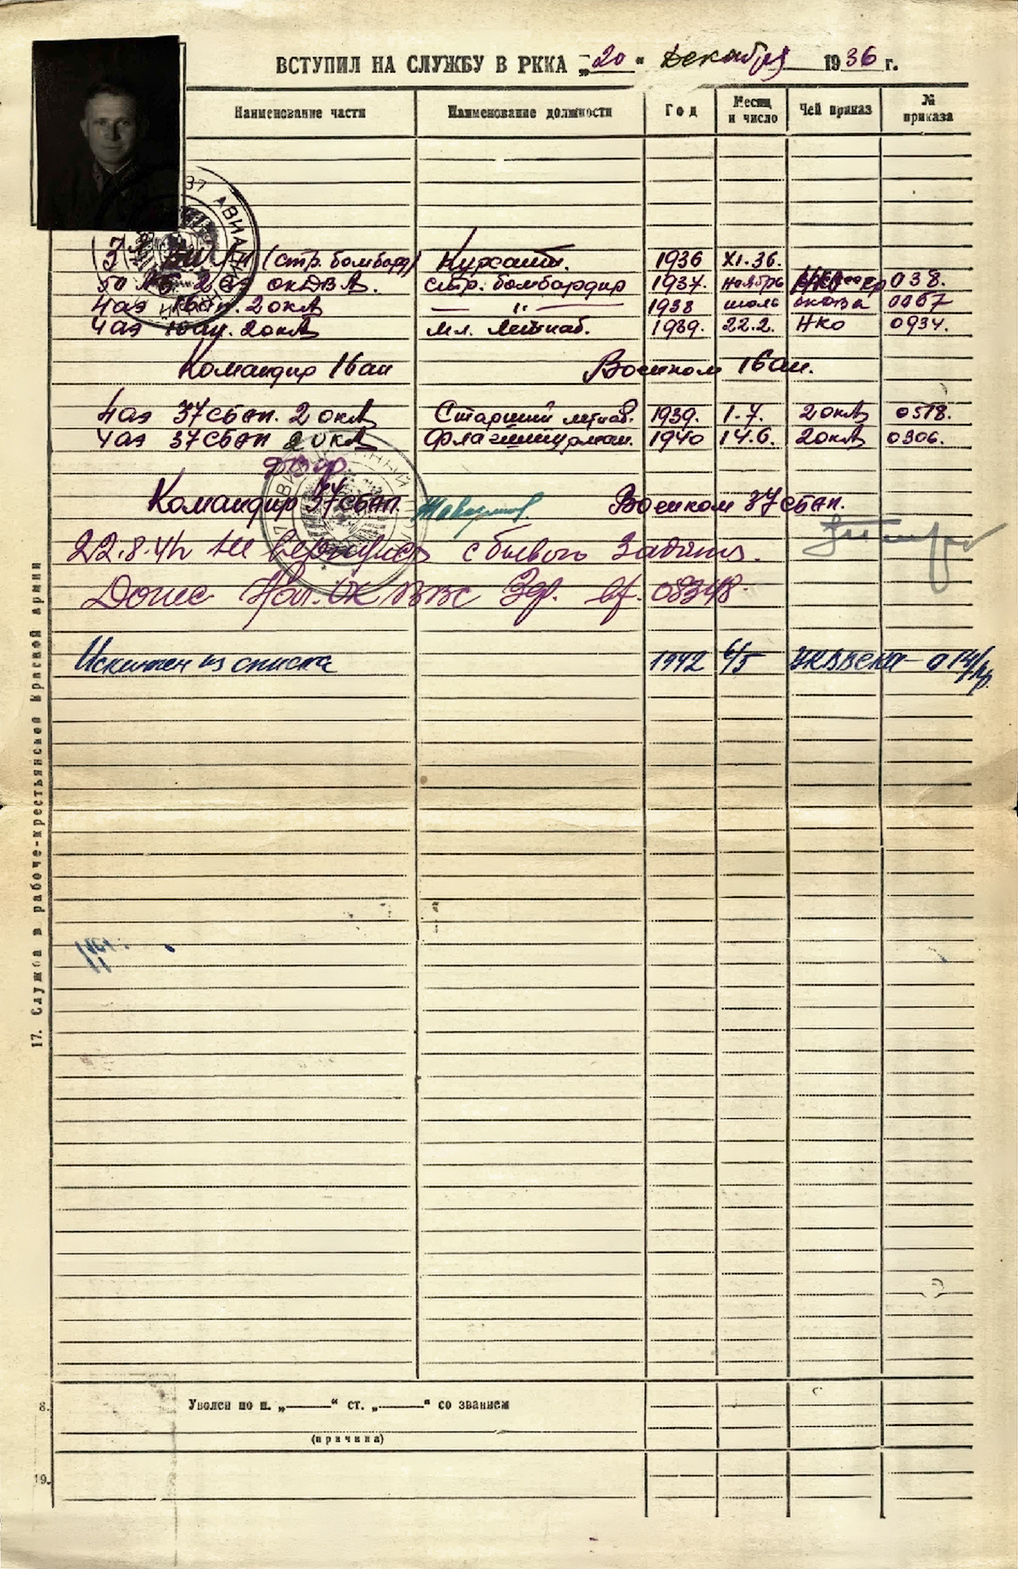 ВСТУПИЛ НА СЛУЖБУ В РККА „20“ декабря 1936 г.
Наименование части Наименование должности Год Месяц и число Чей приказ № приказа
37 АВИА
(стр. бомбард) Курсант. 1936 XI.36.
ОКДВА. стр. бомбардир 1937. ноябрь 038.
4аэ 16ап. 2окА — " — 1938 июль 0067
4аэ 16ап. 2окА Мл. Летнаб. 1939. 22.2. НКО 0934.
Командир 16ап Военком 16ап.
4аэ 37сбап. 2окА Старший летнаб. 1939. 1.7. 2окА 0518.
4аэ 37сбап 2окА Флагштурман. 1940 14.6. 2окА 0306.
Командир 37сбап. Военком 37сбап.
22.8.41г не вернулся с боевого задания.
Донес 08348.
Исключен из списка 1942 6/5
17. Служба в рабоче-крестьянской Красной армии
8. Уволен по п. „ “ ст. „ “ со званием
(причина)
19.